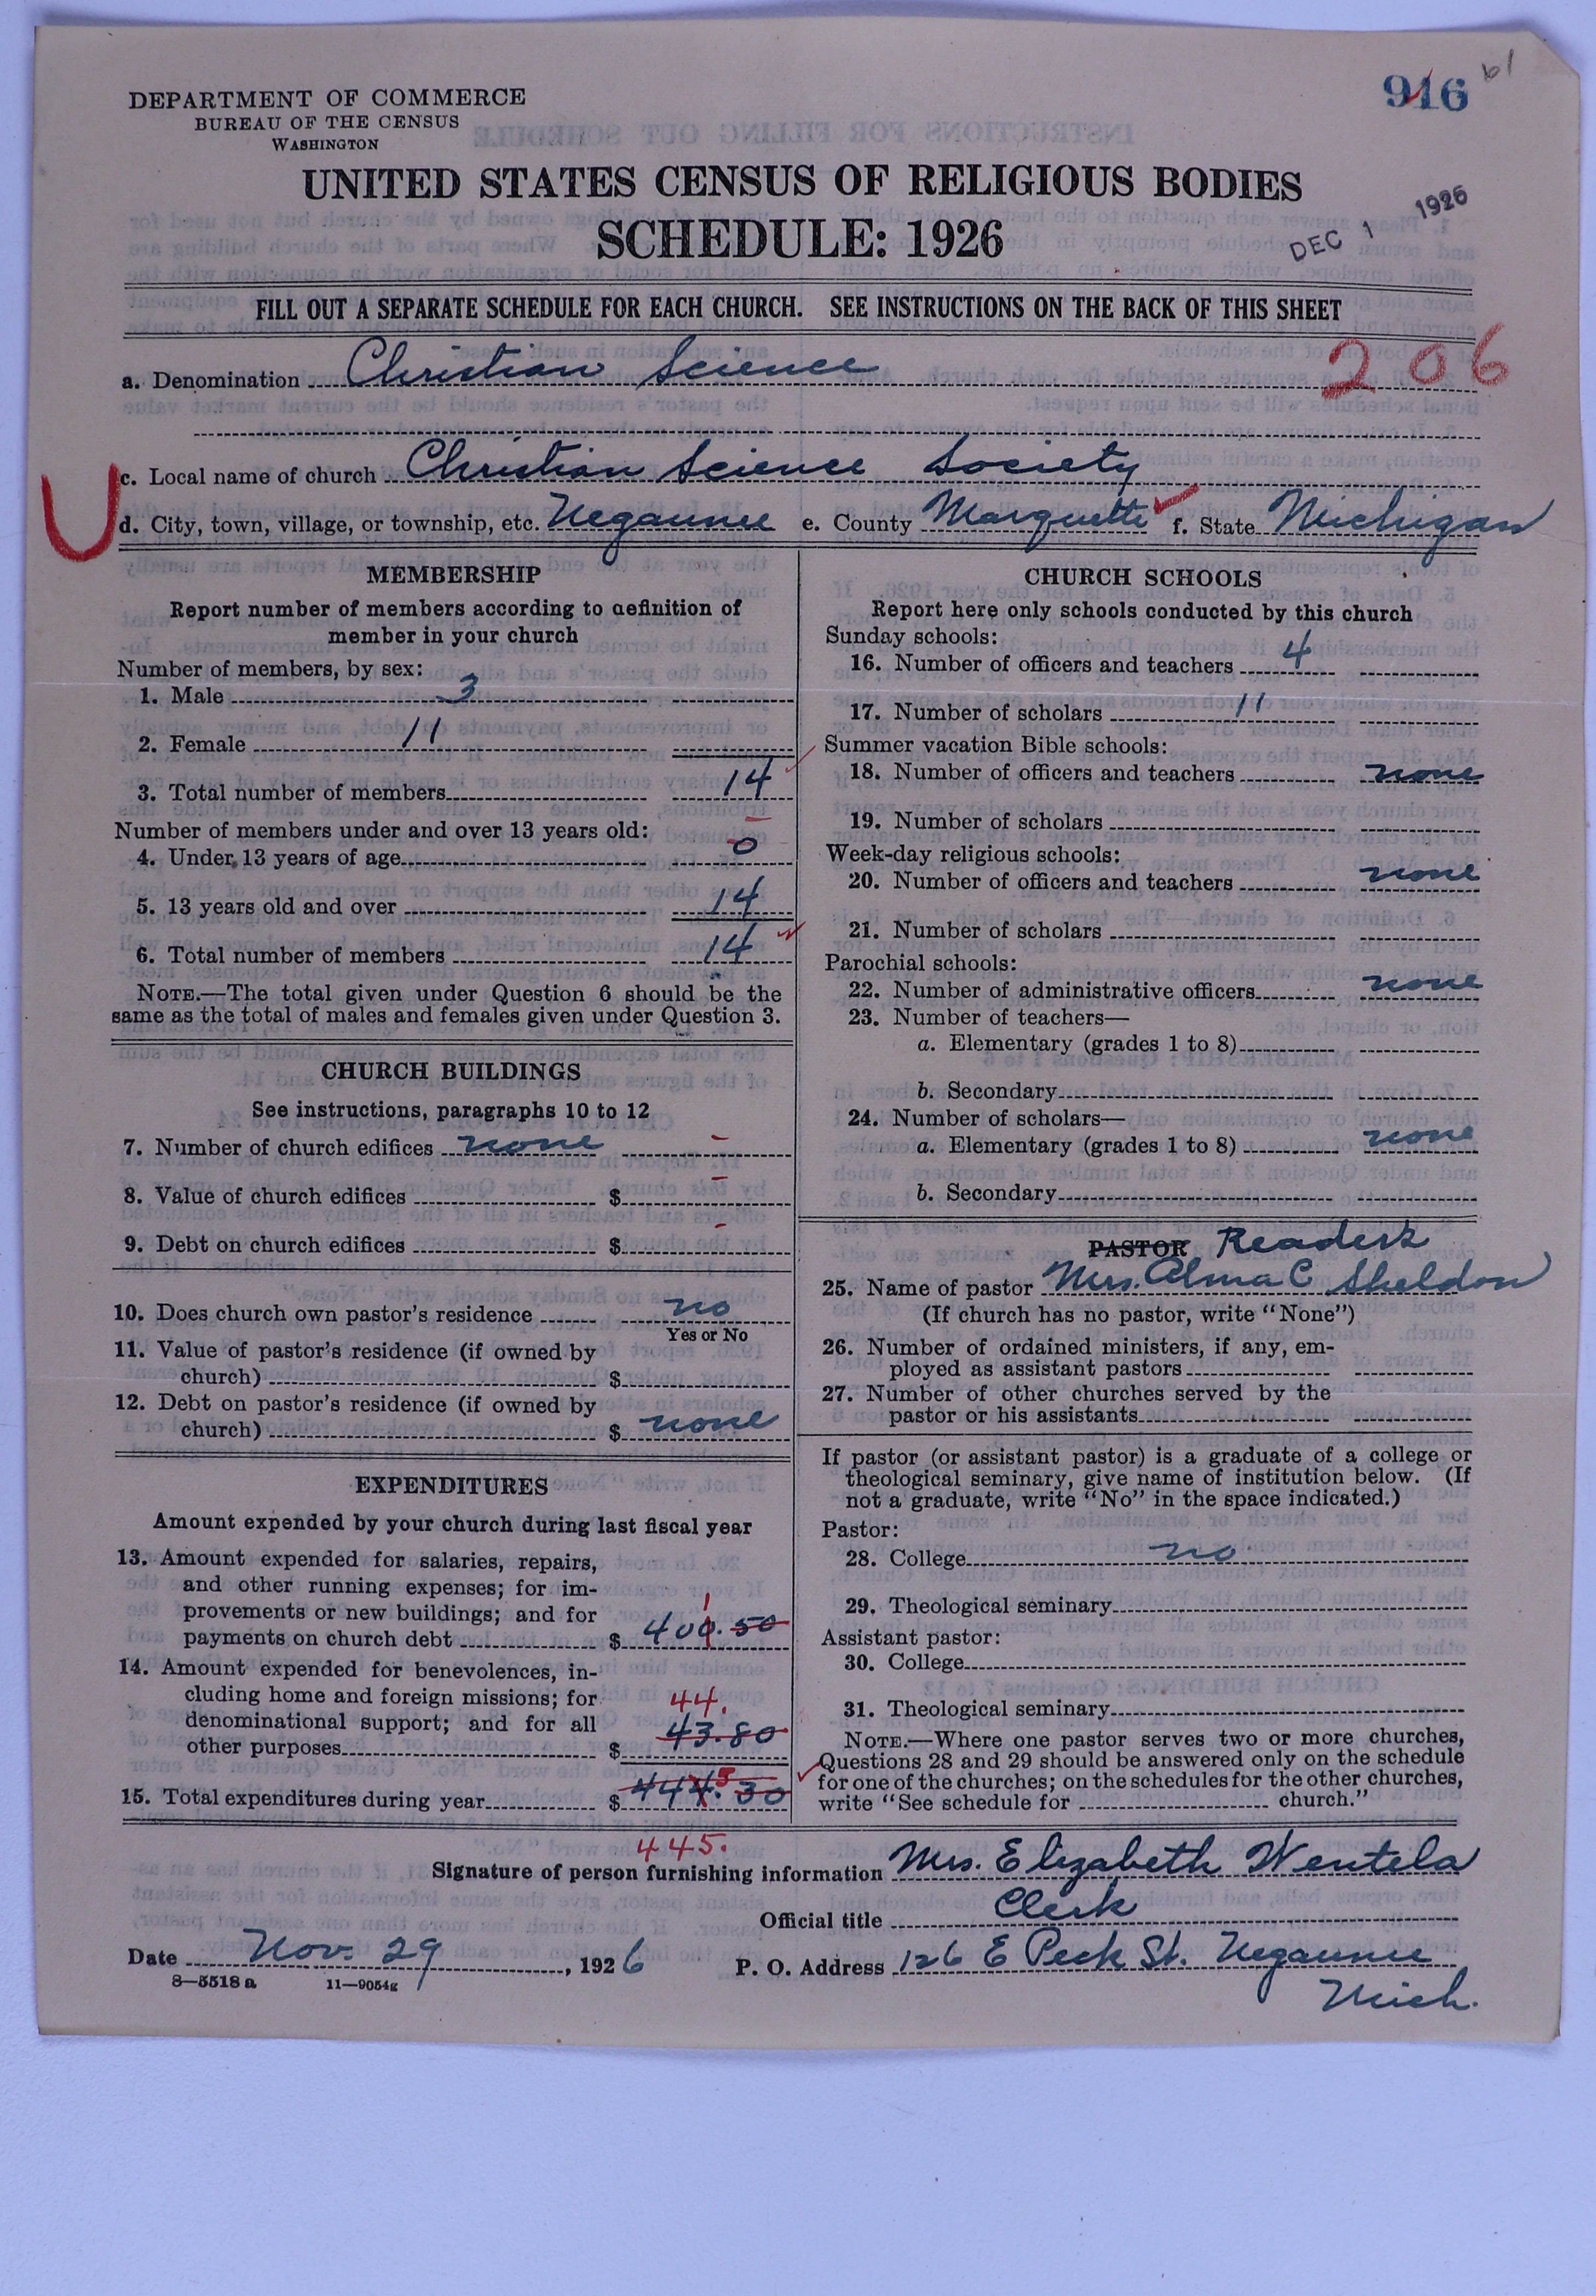 916 61
DEPARTMENT OF COMMERCE
BUREAU OF THE CENSUS
WASHINGTON
UNITED STATES CENSUS OF RELIGIOUS BODIES
SCHEDULE: 1926
DEC 1 1926
FILL OUT A SEPARATE SCHEDULE FOR EACH CHURCH. SEE INSTRUCTIONS ON THE BACK OF THIS SHEET
a. Denomination Christian Science 206
c. Local name of church Christian Science Society
d. City, town, village, or township, etc. Negaunee e. County Marquette f. State Michigan
MEMBERSHIP
Report number of members according to definition of
member in your church
Number of members, by sex:
1. Male 3
2. Female 11
3. Total number of members 14
Number of members under and over 13 years old:
4. Under 13 years of age 0
5. 13 years old and over 14
6. Total number of members 14
NOTE.—The total given under Question 6 should be the
same as the total of males and females given under Question 3.
CHURCH BUILDINGS
See instructions, paragraphs 10 to 12
7. Number of church edifices none -
8. Value of church edifices $ -
9. Debt on church edifices $ -
10. Does church own pastor's residence no
Yes or No
11. Value of pastor's residence (if owned by
church) $
12. Debt on pastor's residence (if owned by
church) $ none
EXPENDITURES
Amount expended by your church during last fiscal year
13. Amount expended for salaries, repairs,
and other running expenses; for im-
provements or new buildings; and for 1
payments on church debt $ 400.50
14. Amount expended for benevolences, in-
cluding home and foreign missions; for 44.
denominational support; and for all 43.80
other purposes $
15. Total expenditures during year $ 444.30 5
445.
CHURCH SCHOOLS
Report here only schools conducted by this church
Sunday schools:
16. Number of officers and teachers 4
17. Number of scholars 11
Summer vacation Bible schools:
18. Number of officers and teachers none
19. Number of scholars
Week-day religious schools:
20. Number of officers and teachers none
21. Number of scholars
Parochial schools:
22. Number of administrative officers none
23. Number of teachers—
a. Elementary (grades 1 to 8)
b. Secondary
24. Number of scholars—
a. Elementary (grades 1 to 8) none
b. Secondary
PASTOR Readers
25. Name of pastor Mrs. Alma C Sheldon
(If church has no pastor, write "None")
26. Number of ordained ministers, if any, em-
ployed as assistant pastors
27. Number of other churches served by the
pastor or his assistants
If pastor (or assistant pastor) is a graduate of a college or
theological seminary, give name of institution below. (If
not a graduate, write "No" in the space indicated.)
Pastor:
28. College no
29. Theological seminary
Assistant pastor:
30. College
31. Theological seminary
NOTE.—Where one pastor serves two or more churches,
Questions 28 and 29 should be answered only on the schedule
for one of the churches; on the schedules for the other churches,
write "See schedule for church."
Signature of person furnishing information Mrs. Elizabeth Wentela
Official title Clerk
Date Nov. 29, 1926 P. O. Address 126 E Peck St. Negaunee
Mich.
8—5518 a 11—9054g